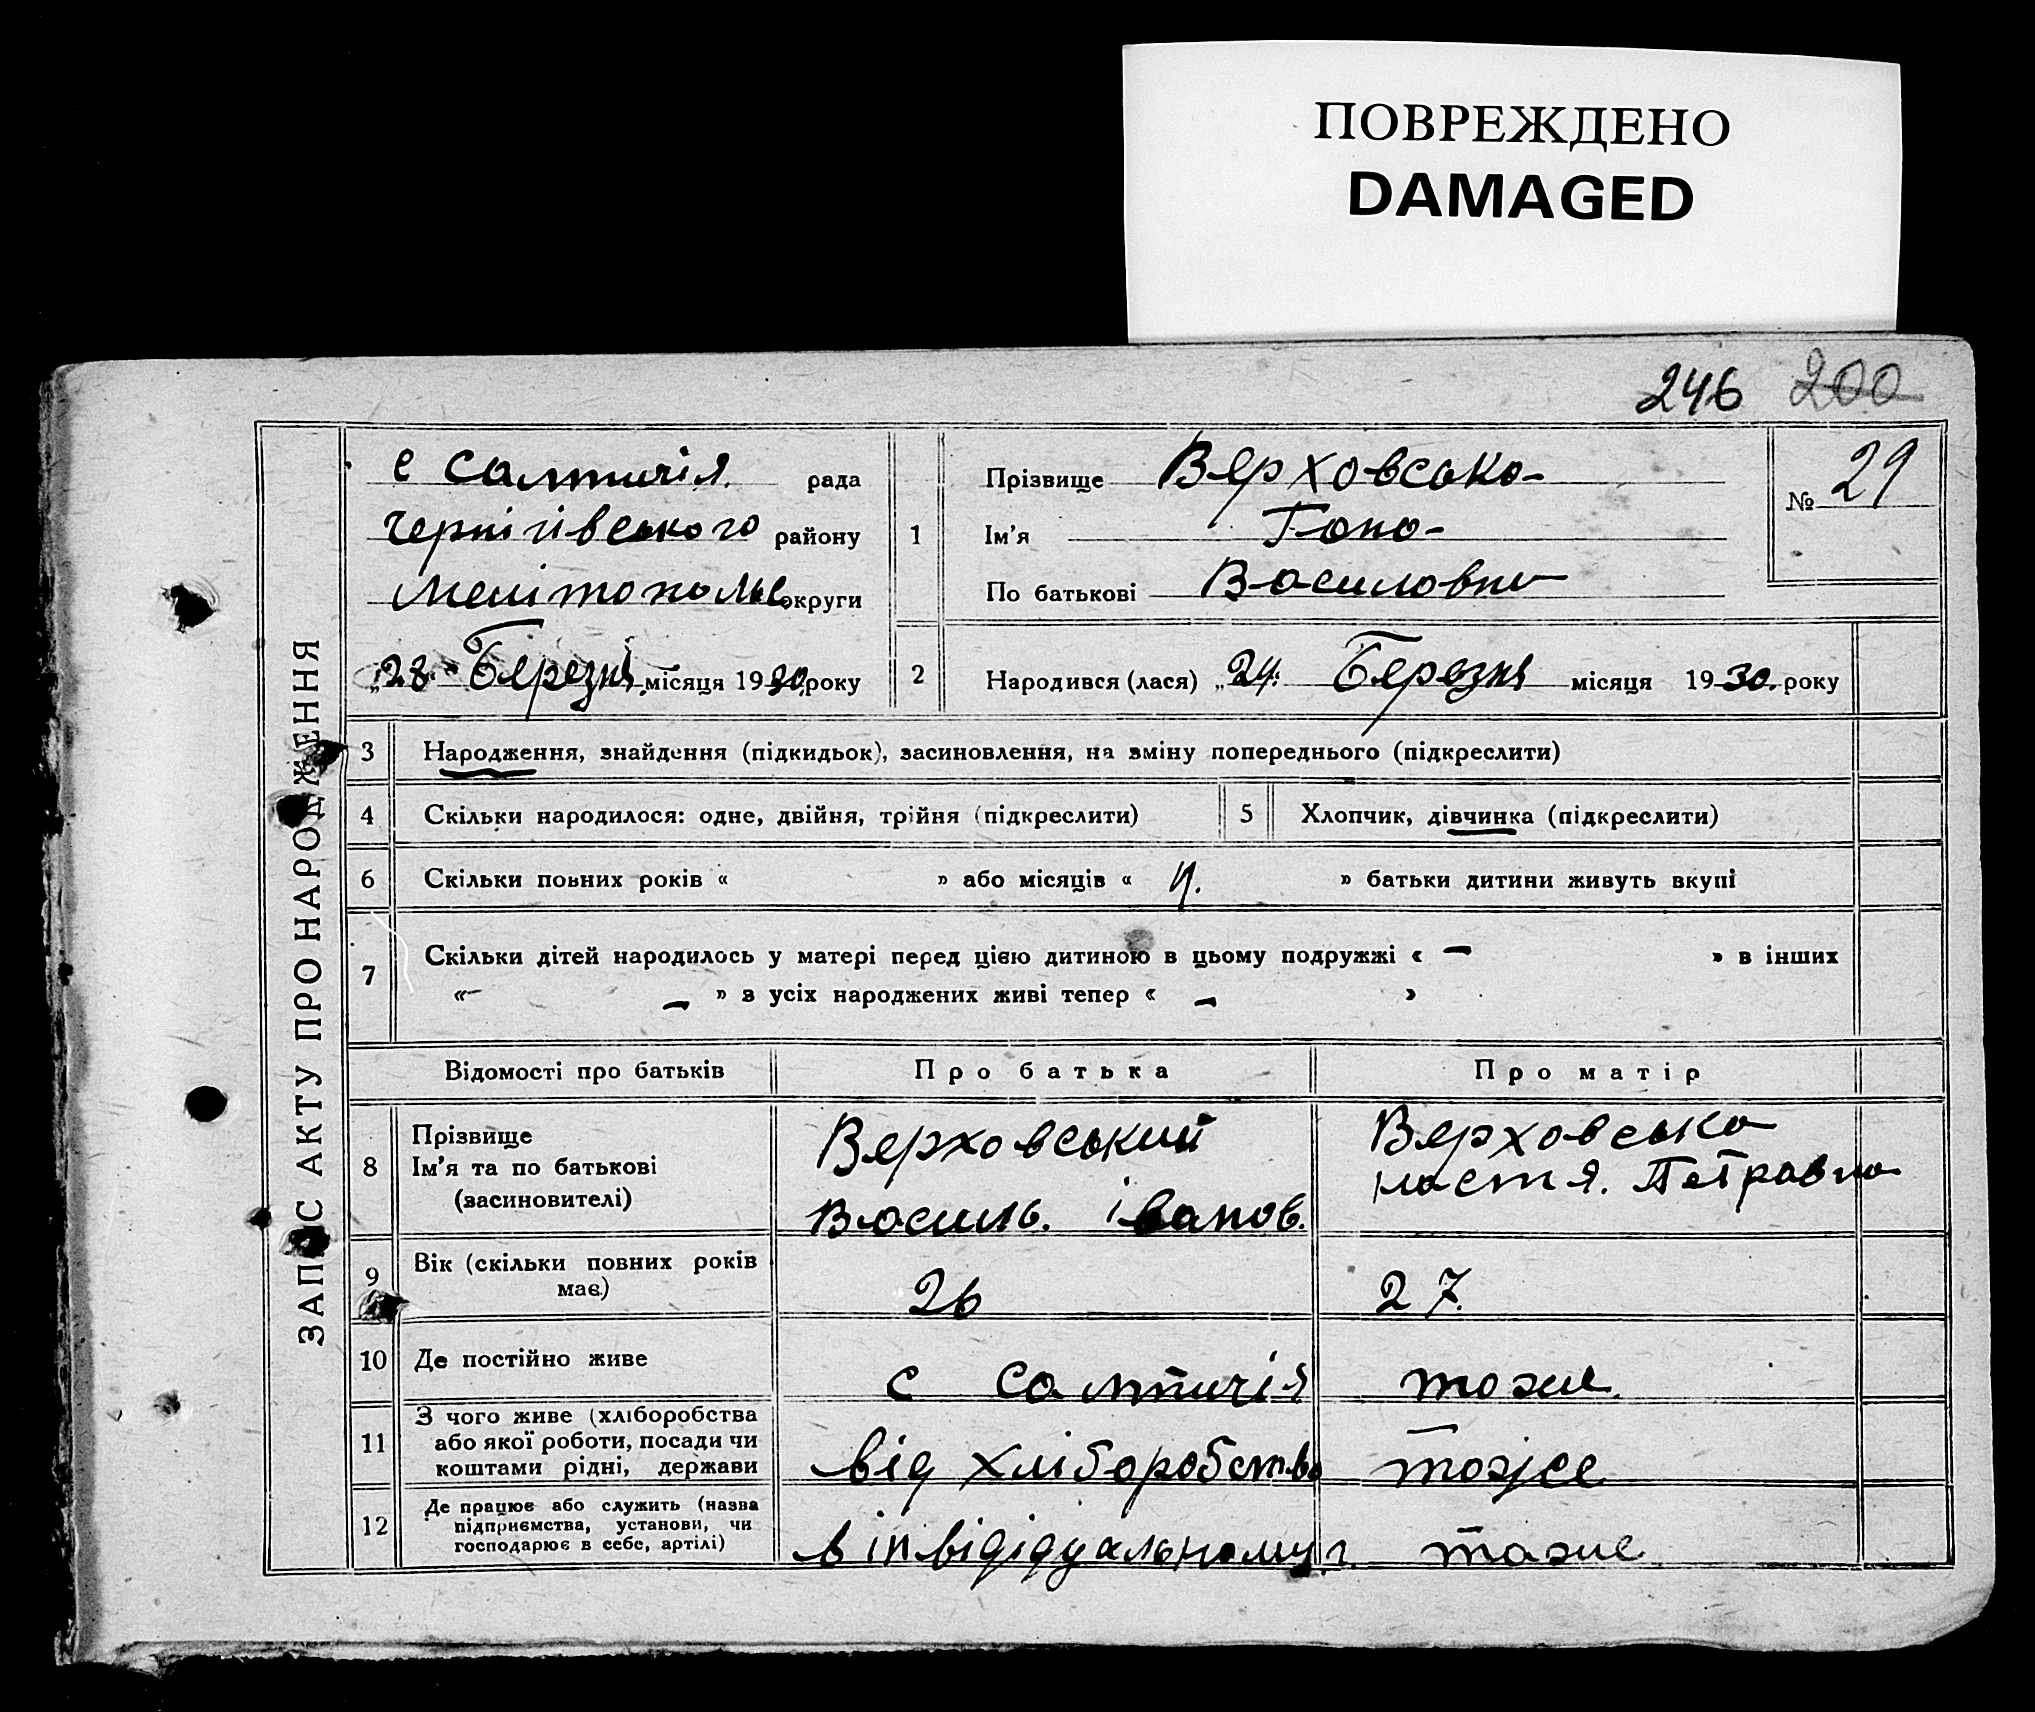 ПОВРЕЖДЕНО
DAMAGED
246 200
ЗАПИС АКТУ ПРО НАРОДЖЕННЯ
с Салтичія рада
Чернігівського району
Мелітопольс округи
„28" Березня місяця 1930 року
1
Прізвище Верховська
Ім'я
По батькові Василовна
№ 29
2
Народився (лася) „24" Березня місяця 1930. року
3 Народження, знайдення (підкидьок), засиновлення, на зміну попереднього (підкреслити)
4 Скільки народилося: одне, двійня, трійня (підкреслити) 5 Хлопчик, дівчинка (підкреслити)
6 Скільки повних років « » або місяців « » батьки дитини живуть вкупі
7 Скільки дітей народилось у матері перед цією дитиною в цьому подружжі « — » в інших
«— — » з усіх народжених живі тепер « — »
Відомості про батьків Про батька Про матір
8 Прізвище
Ім'я та по батькові
(засиновителі)
Верховський
Василь. Іванов.
Верховська
Настя. Петровна
9 Вік (скільки повних років
має)
26 27.
10 Де постійно живе с Салтичія тоже
11 З чого живе (хліборобства
або якої роботи, посади чи
коштами рідні, держави
від хліборобства тоже
12 Де працює або служить (назва
підприємства, установи, чи
господарює в себе, артілі)
в інвідідуальному г. тоже